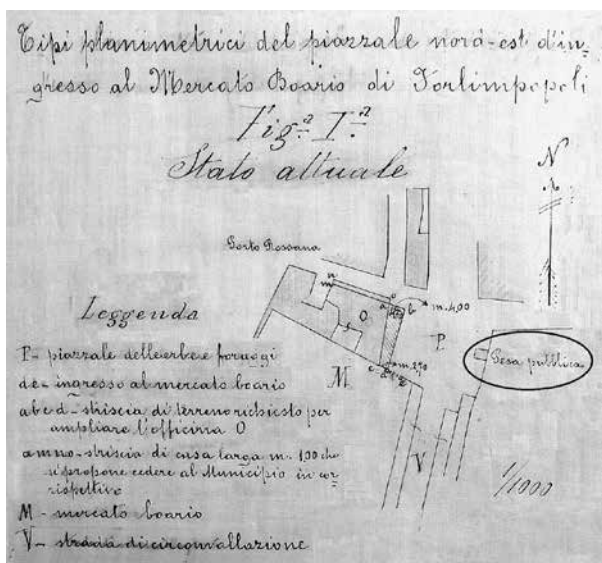 Tipi planimetrici del piazzale nord-est d'in-
gresso al Mercato Boario di Forlimpopoli
Fig.ª I.ª
Stato attuale
N
Porto Rossana
n
m
a
b
m. 4,00
O
P
m. 2,90
M
Pesa pubblica
V
1/1000
Leggenda
P - piazzale delle erbe e foraggi
de - ingresso al mercato boario
abcd - striscia di terreno richiesto per
ampliare l'officina O
amno - striscia di casa larga m. 1,00 che
si propone cedere al Municipio in cor-
rispettivo
M - mercato boario
V - strada di circonvallazione